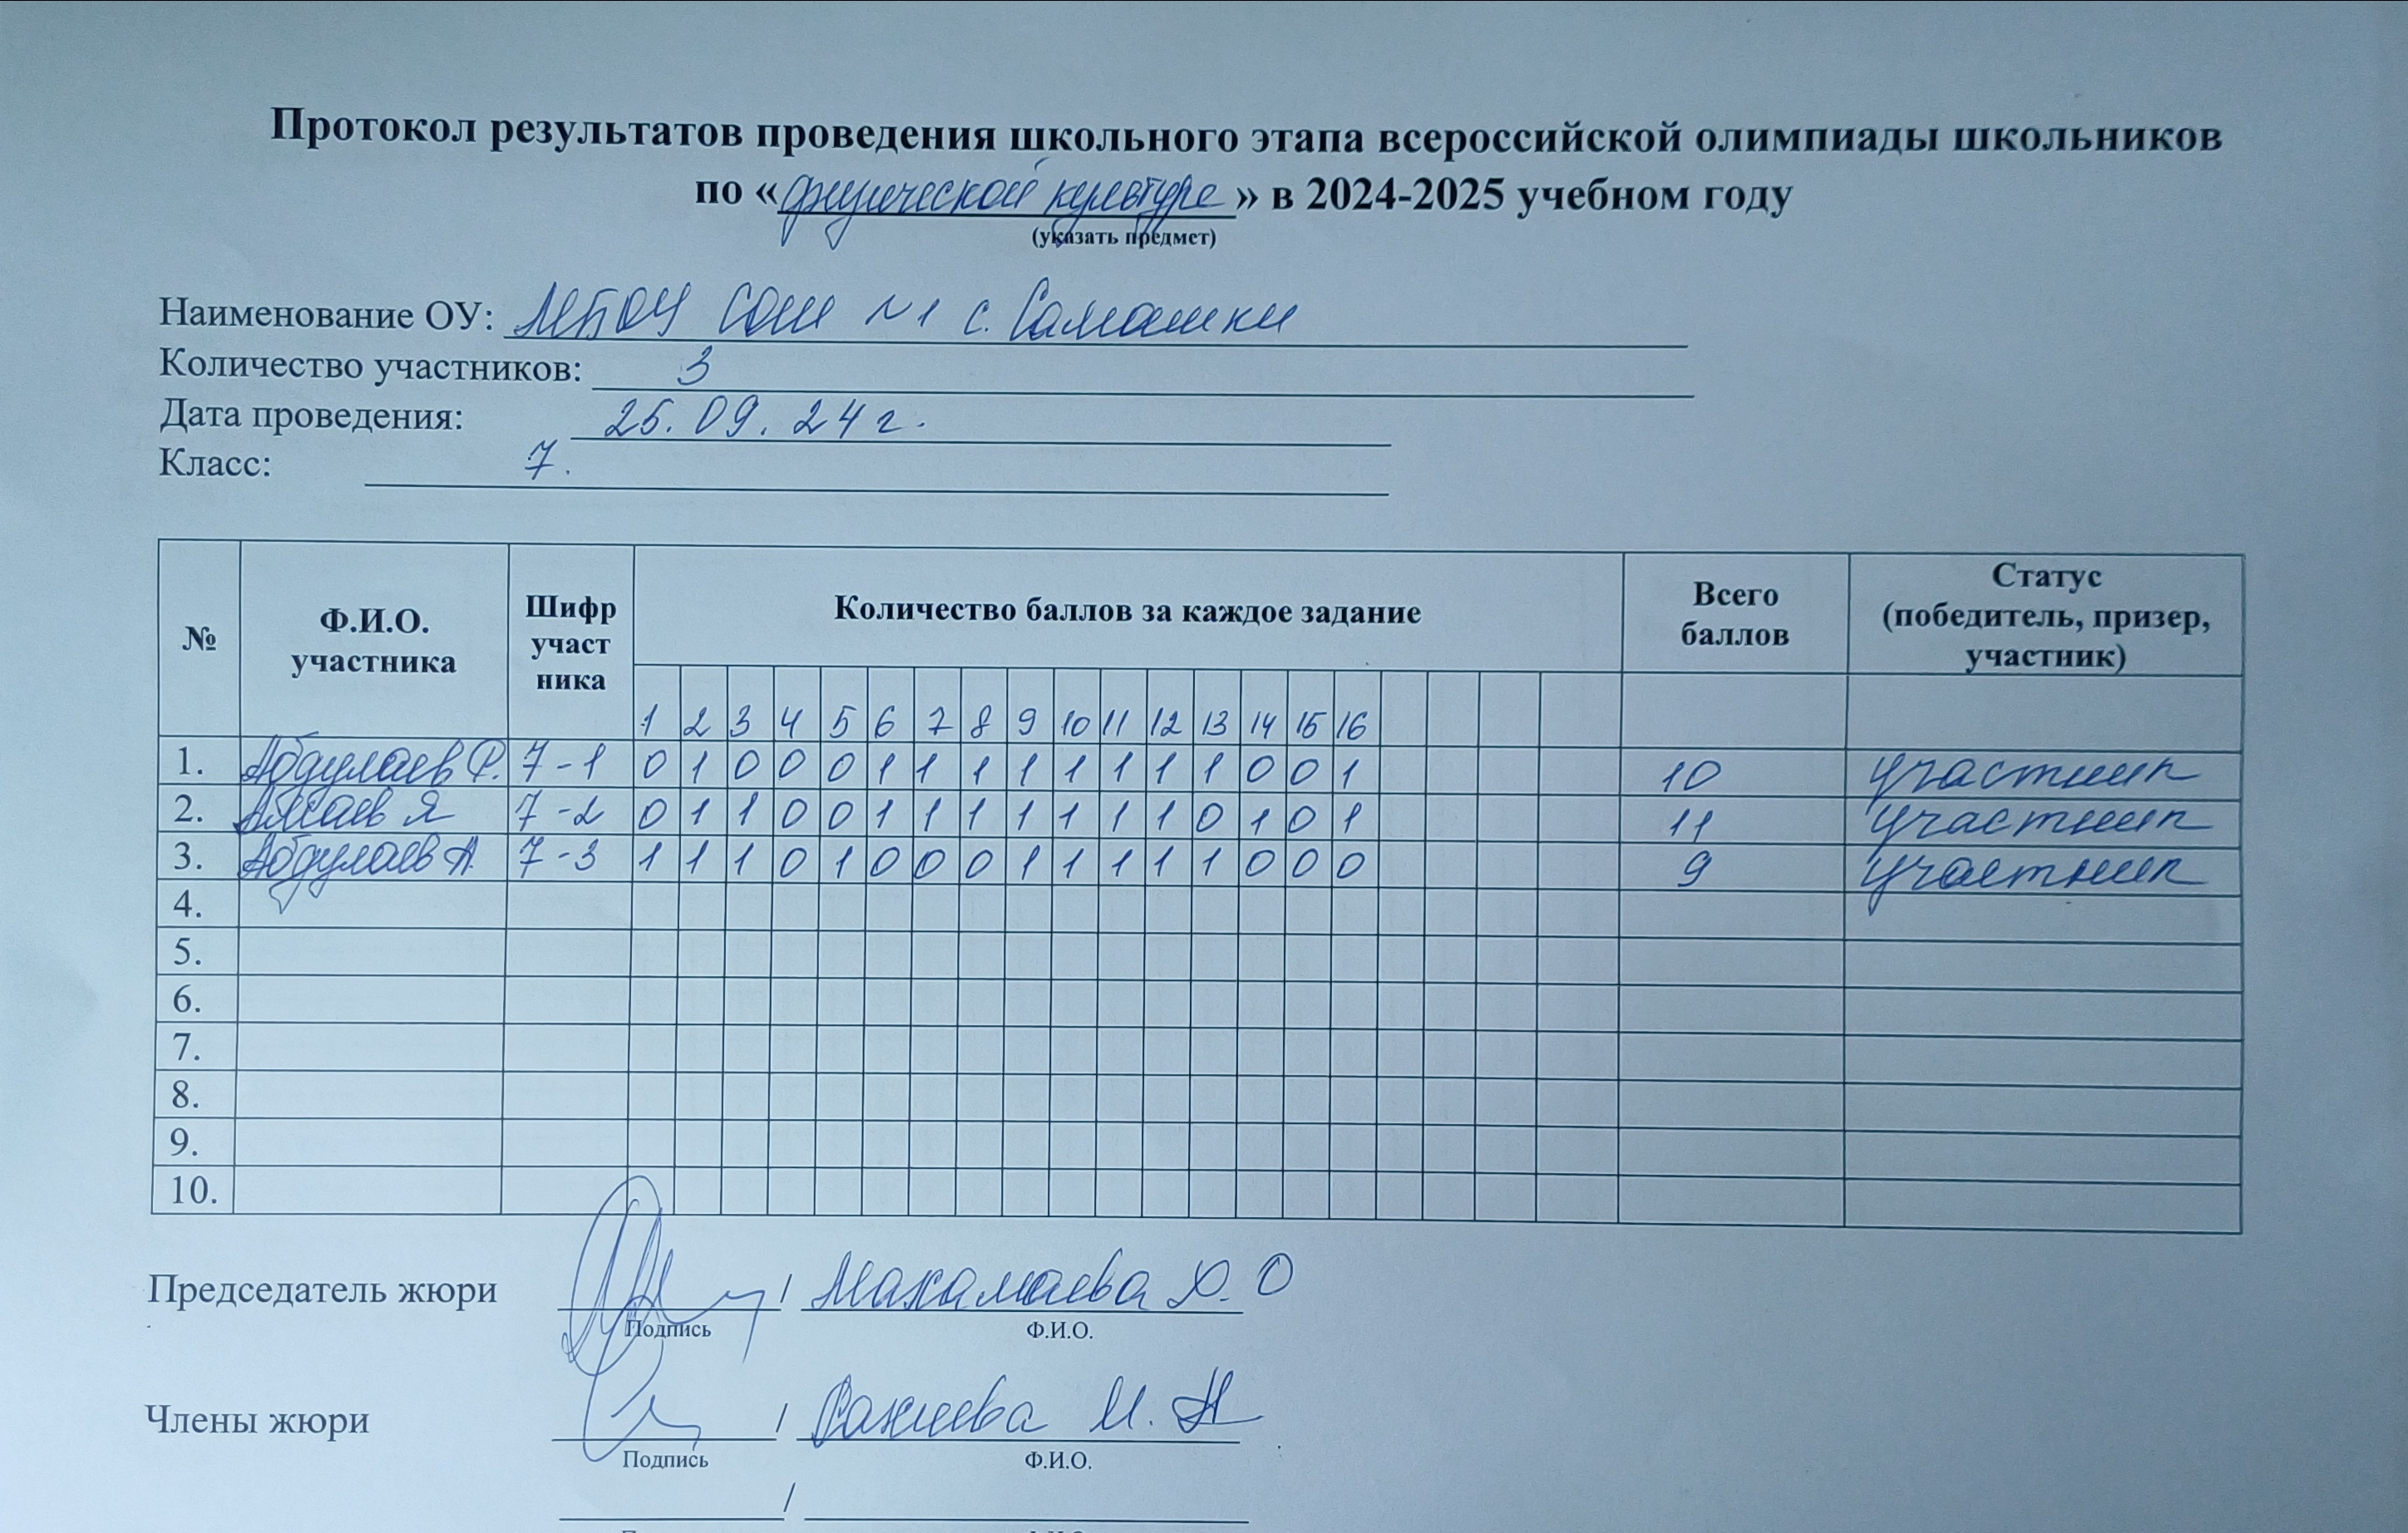 Протокол результатов проведения школьного этапа всероссийской олимпиады школьников
по «физической культуре» в 2024-2025 учебном году
(указать предмет)
Наименование ОУ: МБОУ СОШ №1 с. Самашки
Количество участников: 3
Дата проведения: 25.09.24 г.
Класс: 7.
№ Ф.И.О. участника Шифр участ ника Количество баллов за каждое задание Всего баллов Статус (победитель, призер, участник)
1 2 3 4 5 6 7 8 9 10 11 12 13 14 15 16
1. Абдулаев Р. 7-1 0 1 0 0 0 1 1 1 1 1 1 1 1 0 0 1 10 участник
2. Я 7-2 0 1 1 0 0 1 1 1 1 1 1 1 0 1 0 1 11 участник
3. Абдулаев А. 7-3 1 1 1 0 1 0 0 0 1 1 1 1 1 0 0 0 9 участник
4.
5.
6.
7.
8.
9.
10.
Председатель жюри / Махамаева Х. О
Подпись Ф.И.О.
Члены жюри / М. Н
Подпись Ф.И.О.
/